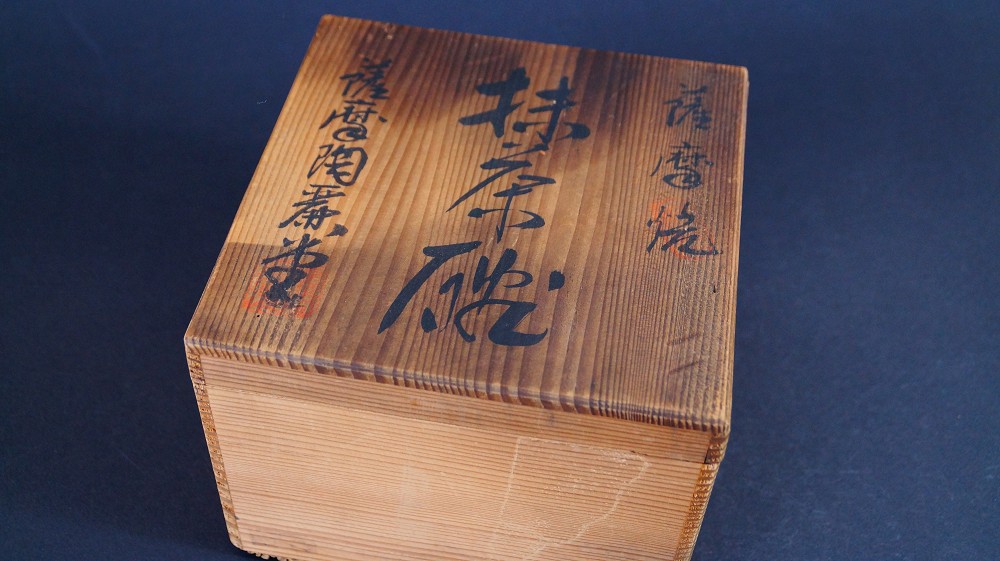 薩摩焼
抹茶碗
薩摩陶藨堂